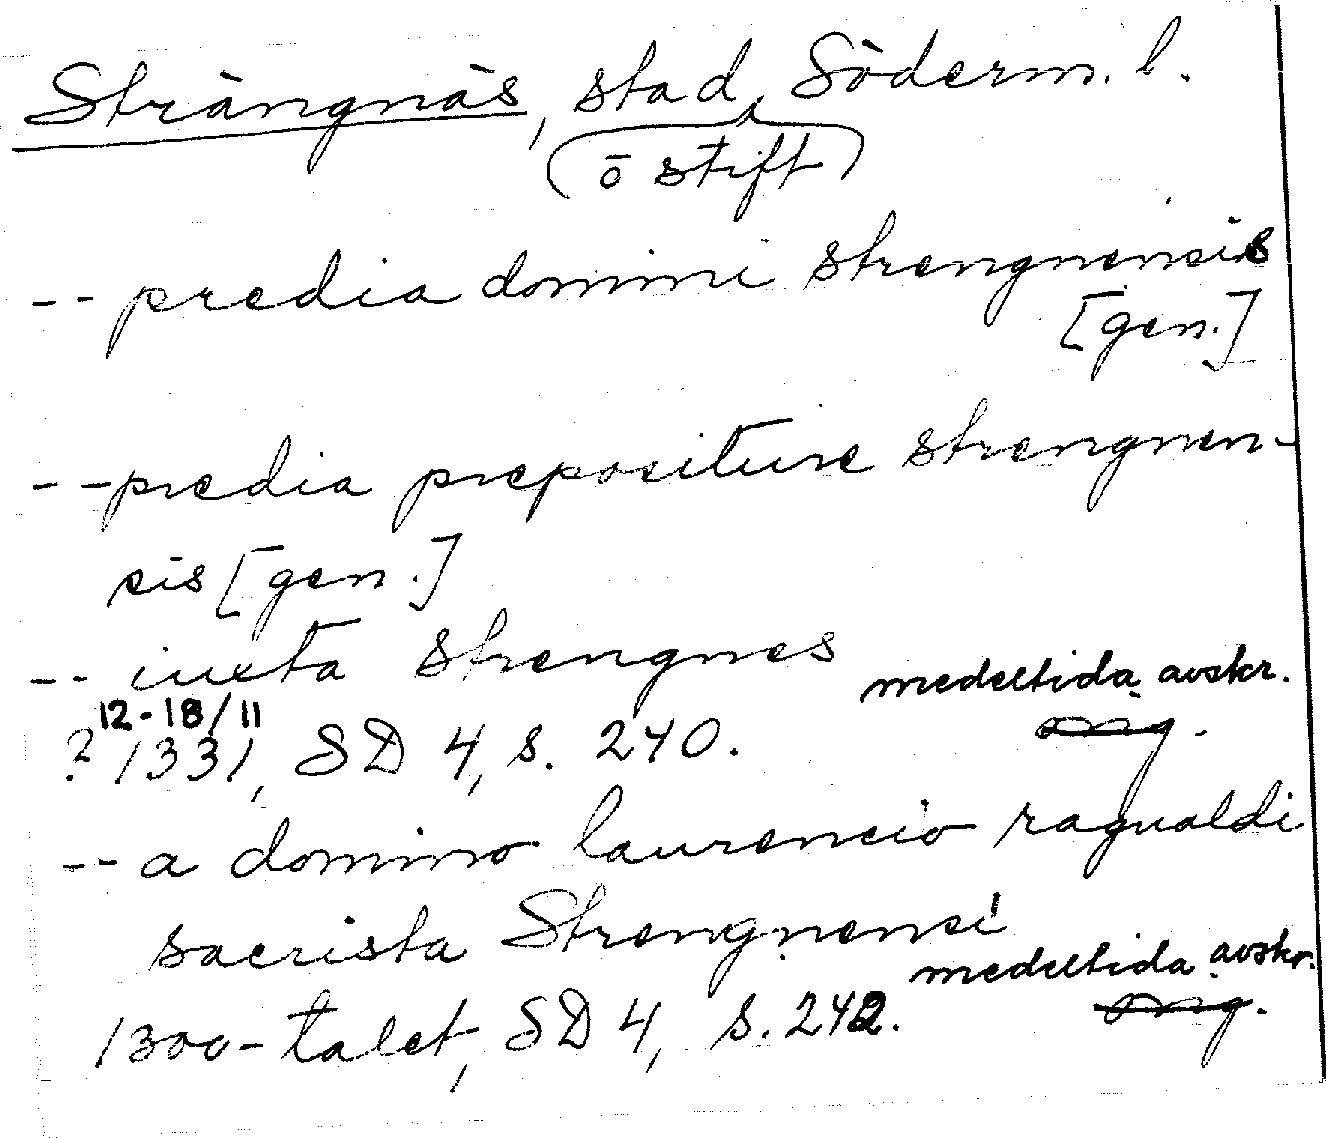 Strängnäs, stad, Söderm. l.
(ō stift)
-- predia domini strengnensis
[gen.]
-- predia prepositure strengnen-
sis [gen.]
-- iuxta strengnes
medeltida avskr.
12-18/11
? 1331, SD 4, s. 240. orig.
-- a domino laurencio ragualdi
sacrista Strengnensi
medeltida avskr.
1300-talet, SD 4, s. 242. orig.